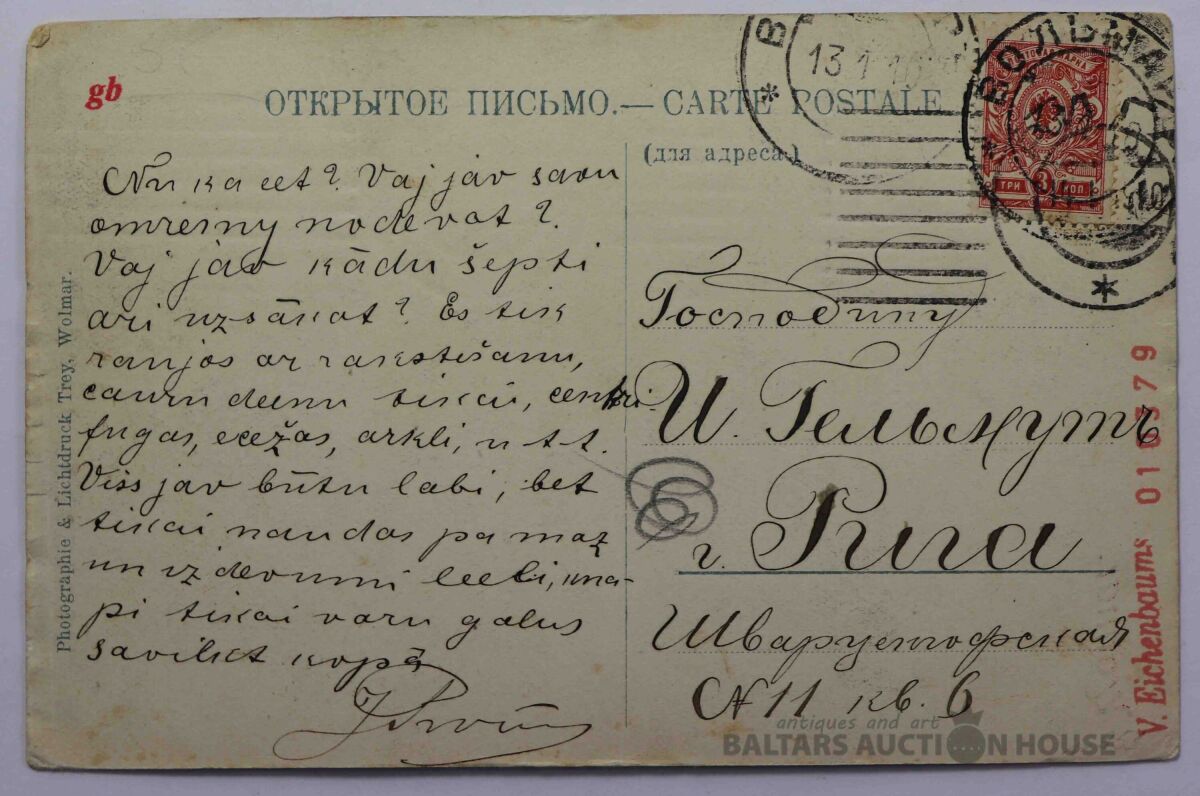 gb
ОТКРЫТОЕ ПИСЬМО.— CARTE POSTALE
(для адреса.)
13 1 10
ВОЛЬМАР
ТРИ 3 КОП
Nu ka eet? Vaj jav savu
nodevat?
Vaj jav kādu šepti
ari uzsākat? Es tik
ranjos ar rakstišanu,
cauru deenu tikai, centri-
fugas, ecežas, arkli, u t t.
Viss jav būtu labi, bet
tikai naudas pa maz
un izdevumi leeli, kna-
pi tikai varu galus
savilkt kopā
Господину
И. Гельмутъ
г. Рига
Шварценгофская
№ 11 кв. 6
Photographie & Lichtdruck Trey, Wolmar.
V. Eichenbaums 01 6979
antiques and art
BALTARS AUCTION HOUSE